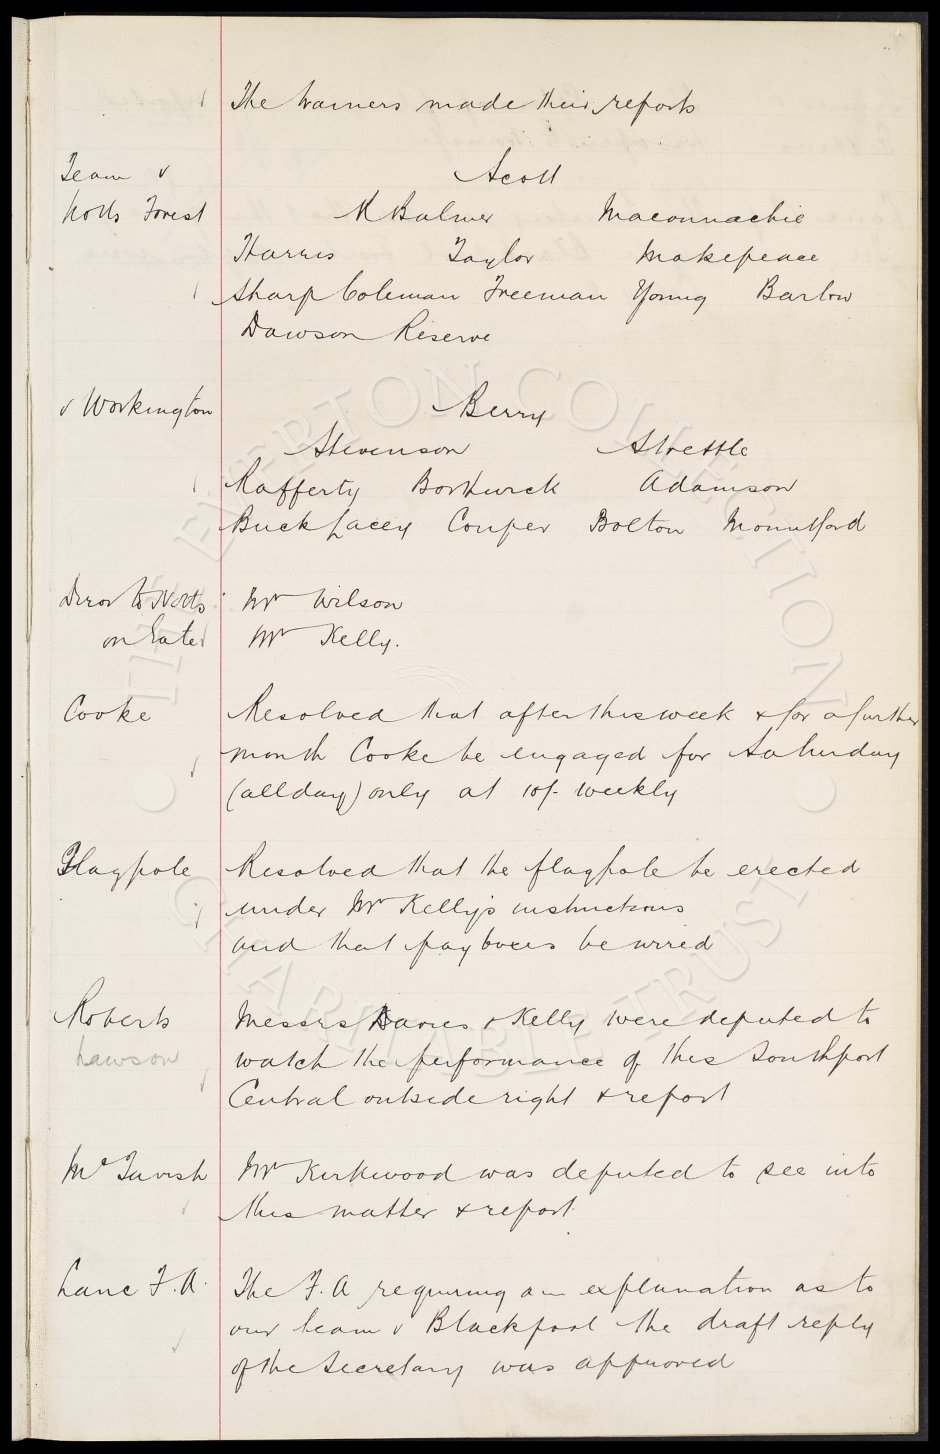 The trainers made their reports
Team v
Notts Forest
Scott
R Balmer Maconnachie
Harris Taylor Makepeace
Sharp Coleman Freeman Young Barlow
Dawson Reserve
v Workington
Berry
Stevenson Strettle
Rafferty Borthwick Adamson
Buck Lacey Couper Bolton Mountford
Diror to Notts Mr Wilson
on Gate Mr Kelly.
Cooke Resolved that after this week & for a further
month Cooke be engaged for Saturday
(all day) only at 10/- weekly
Flagpole Resolved that the flagpole be erected
under Mr Kelly's instructions
and that payboxes be wired
Roberts Messrs Davies & Kelly were deputed to
Lawson watch the performance of this Southport
Central outside right & report
McTavish Mr Kirkwood was deputed to see into
this matter & report
Lanc F.A. The F.A requiring an explanation as to
our team v Blackpool the draft reply
of the Secretary was approved
THE EVERTON COLLECTION
CHARITABLE TRUST